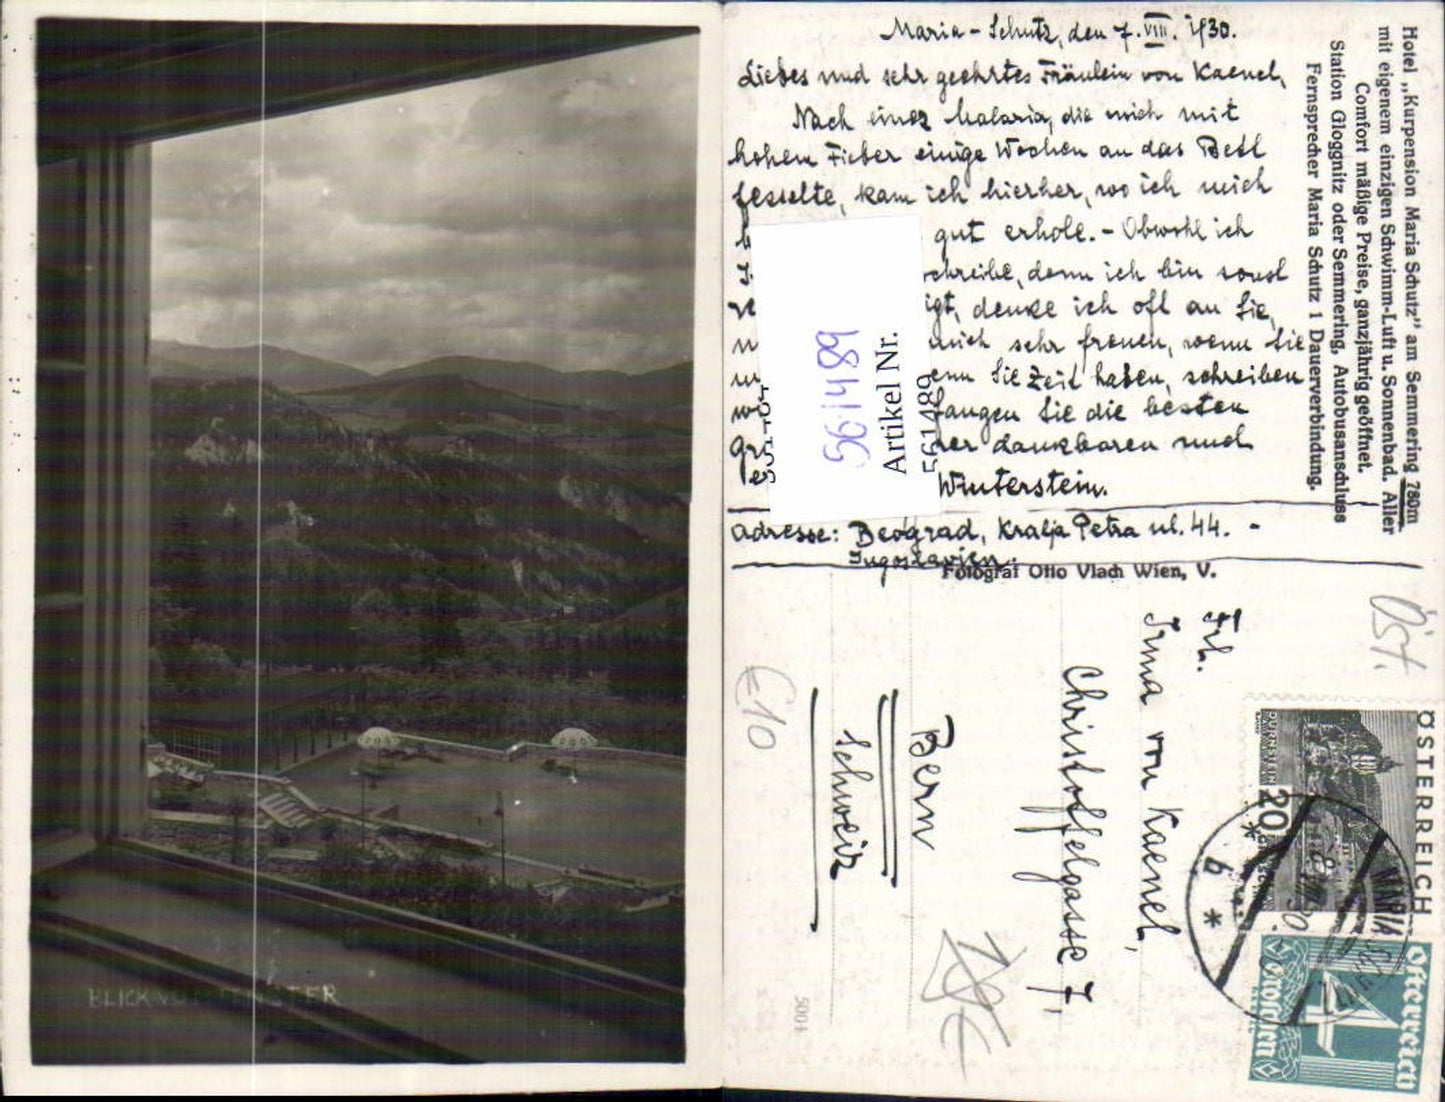 BLICK VOM FENSTER
Maria-Schutz, den 7. VIII. 1930.
Liebes und sehr geehrtes Fräulein von Kaenel,
Nach einer Malaria, die mich mit
hohem Fieber einige Wochen an das Bett
fesselte, kam ich hierher, wo ich mich
gut erhole. - Obwohl ich
schreibe, denn ich bin sonst
igt, denke ich oft an Sie,
mich sehr freuen, wenn Sie
enn Sie Zeit haben, schreiben
fangen Sie die besten
rer dankbaren und
Winterstein.
Adresse: Beograd, Kralja Petra ul. 44. -
Jugoslavien.
Artikel Nr.
561489
561489
Hotel „Kurpension Maria Schutz" am Semmering 780m
mit eigenem einzigen Schwimm-Luft u. Sonnenbad. Aller
Comfort mäßige Preise, ganzjährig geöffnet.
Station Gloggnitz oder Semmering, Autobusanschluss
Fernsprecher Maria Schutz 1 Dauerverbindung.
Fotograf Otto Vlach Wien, V.
Frl.
Irma von Kaenel,
Christoffelgasse 7,
Bern
Schweiz
Öst.
€10
5001
ÖSTERREICH
DÜRNSTEIN
20
MARIA
* b *
Österreich
4
Groschen